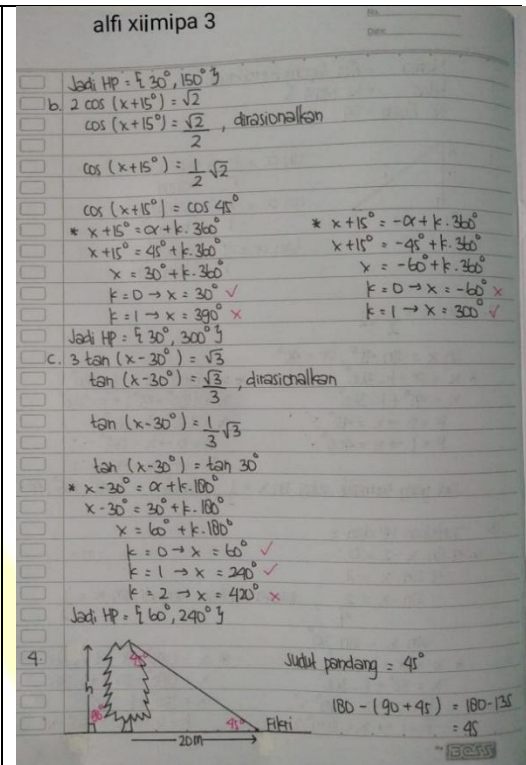 alfi xiimipa 3
No.
Date
Jadi HP = { 30°, 150° }
b. 2 cos (x+15°) = √2
cos (x+15°) = √2/2 , dirasionalkan
cos (x+15°) = 1/2 √2
cos (x+15°) = cos 45°
* x+15° = α + k. 360°
x+15° = 45° + k. 360°
x = 30° + k. 360°
k = 0 → x = 30° ✓
k = 1 → x = 390° ×
* x+15° = -α + k. 360°
x+15° = -45° + k. 360°
x = -60° + k. 360°
k = 0 → x = -60° ×
k = 1 → x = 300° ✓
Jadi HP = { 30°, 300° }
c. 3 tan (x-30°) = √3
tan (x-30°) = √3/3 , dirasionalkan
tan (x-30°) = 1/3 √3
tan (x-30°) = tan 30°
* x-30° = α + k. 180°
x-30° = 30° + k. 180°
x = 60° + k. 180°
k = 0 → x = 60° ✓
k = 1 → x = 240° ✓
k = 2 → x = 420° ×
Jadi HP = { 60°, 240° }
4.
h
45°
90°
45°
Fikri
20 m
Sudut pandang = 45°
180 - (90 + 45) = 180 - 135
= 45
BOSS